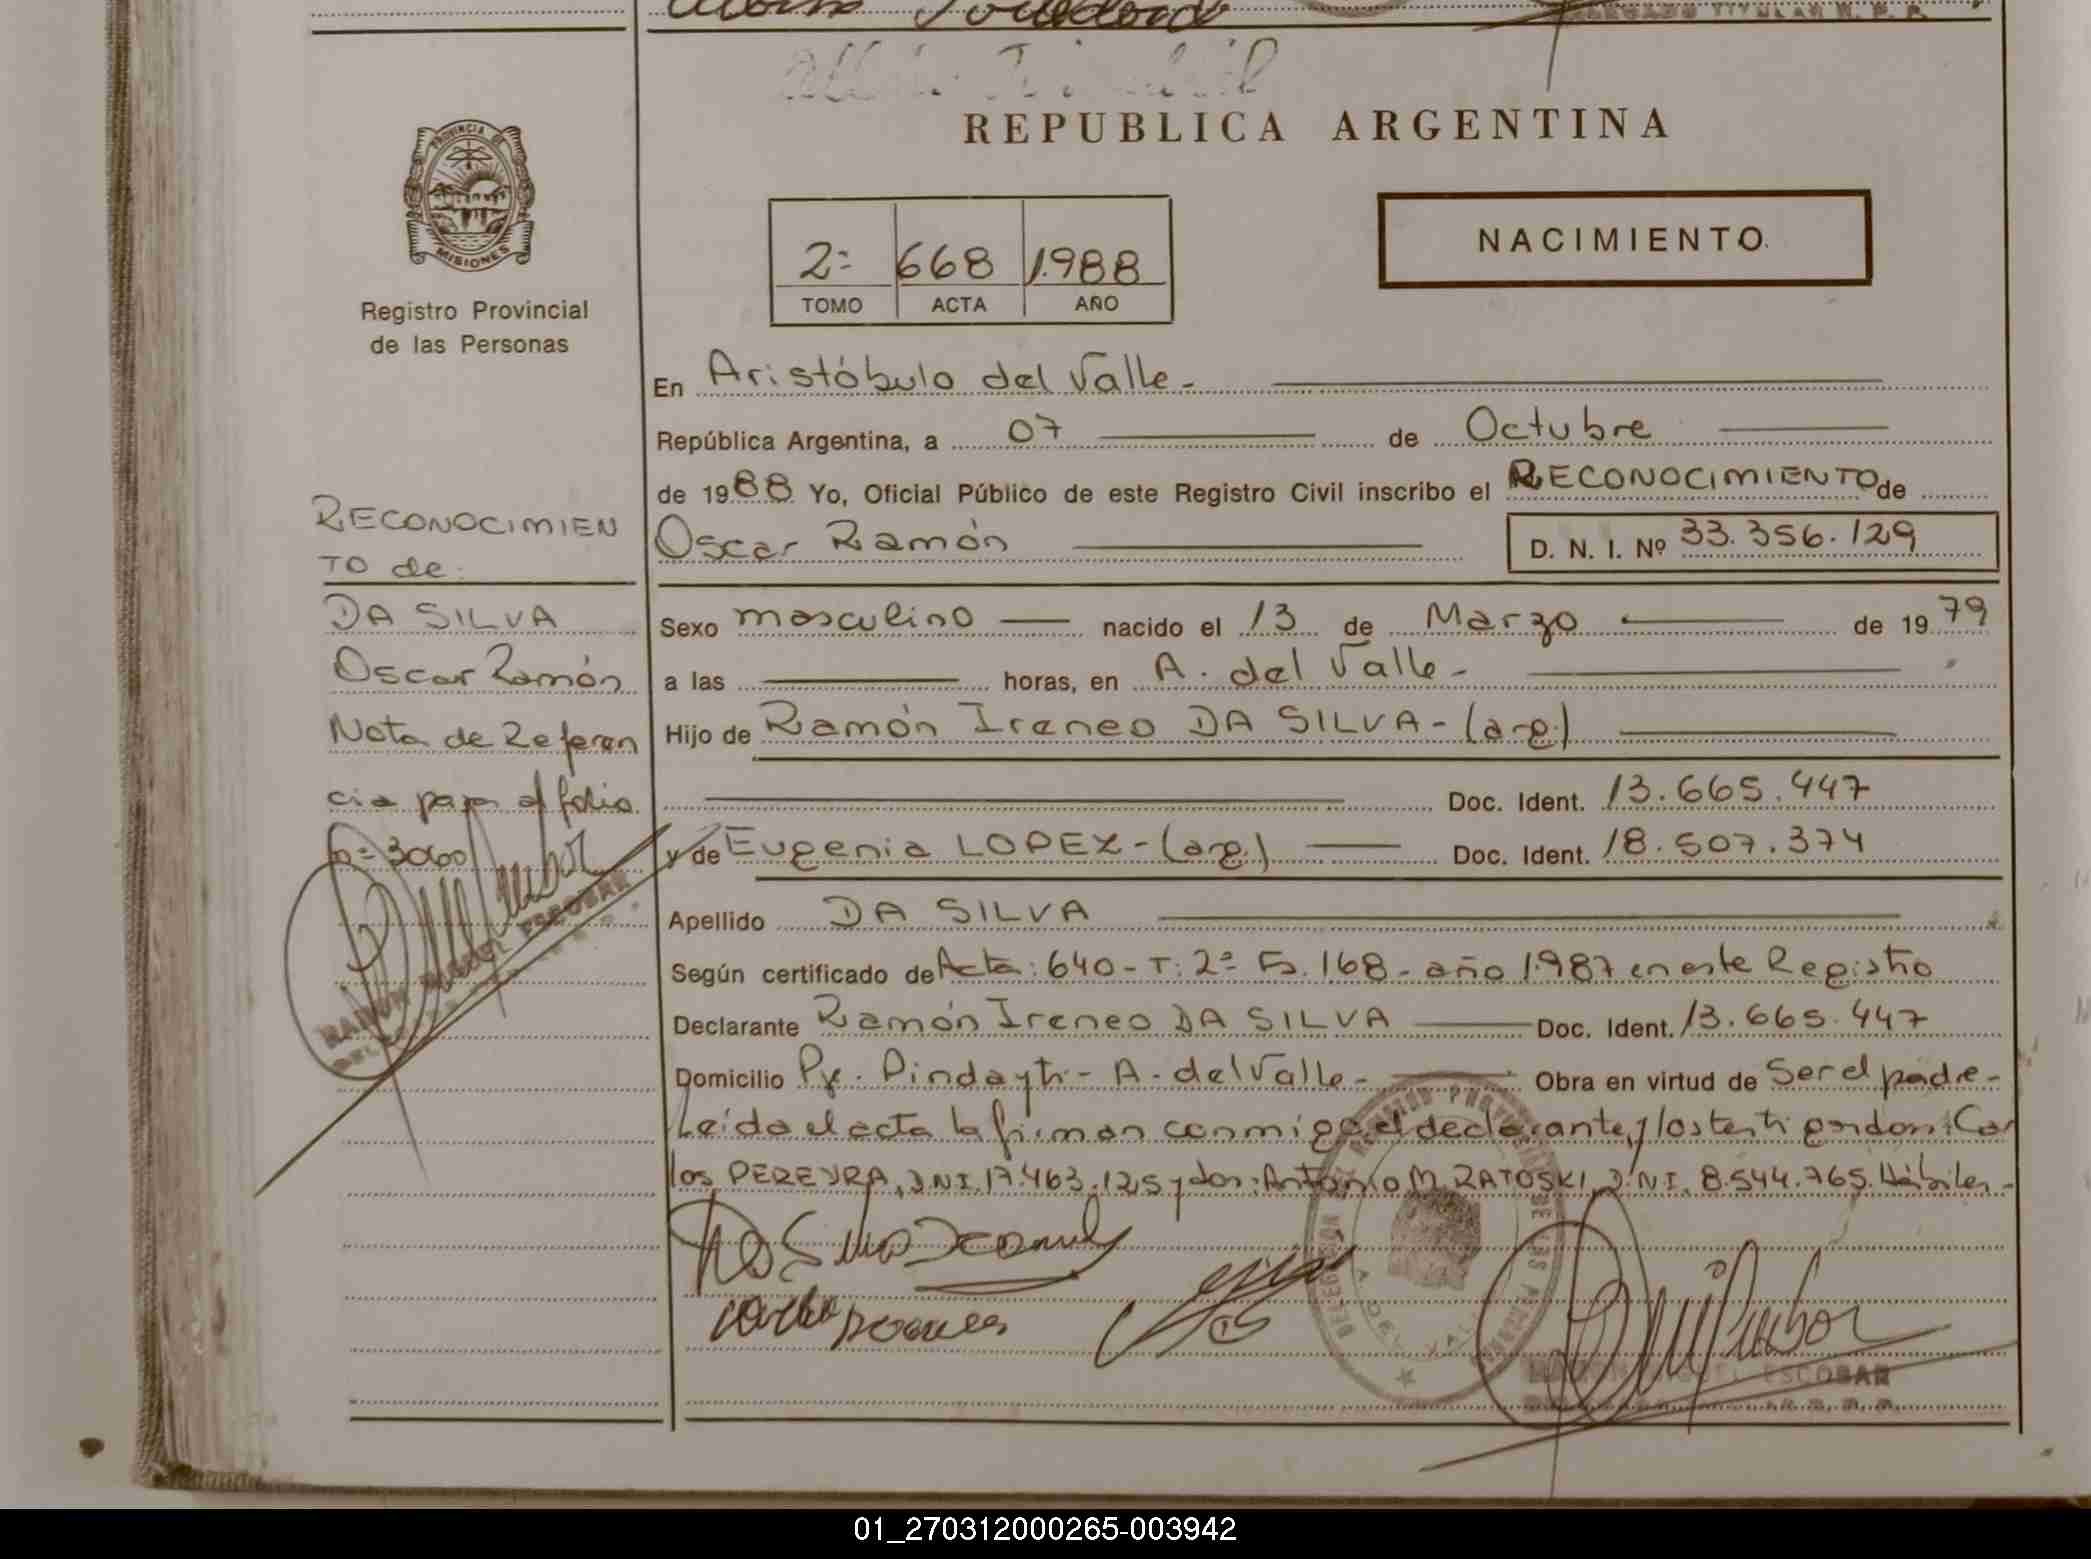 REPUBLICA ARGENTINA
PROVINCIA DE
MISIONES
Registro Provincial
de las Personas
2º 668 1.988
TOMO ACTA AÑO
NACIMIENTO
En Aristóbulo del Valle.-
República Argentina, a 07 de Octubre
de 1988 Yo, Oficial Público de este Registro Civil inscribo el RECONOCIMIENTO de
Oscar Ramón D. N. I. Nº 33.356.129
Sexo masculino nacido el 13 de Marzo de 1979
a las horas, en A. del Valle.-
Hijo de Ramón Ireneo DA SILVA-(arg.)
Doc. Ident. 13.665.447
y de Eugenia LOPEZ-(arg.) Doc. Ident. 18.507.374
Apellido DA SILVA
Según certificado de Acta: 640-T: 2º Fs. 168- año 1.987 en este Registro
Declarante Ramón Ireneo DA SILVA Doc. Ident. 13.665.447
Domicilio Pje. Pindayti- A. del Valle.- Obra en virtud de Ser el padre-
Leída el acta la firman conmigo, el declarante, y los testigos don: Car
los PEREYRA, D.N.I. 17.463.125 y don: Antonio M. RATOSKI, D.N.I. 8.544.765. Hábiles.-
RECONOCIMIEN
TO de.
DA SILVA
Oscar Ramón
Nota de Referen
cia pasa al folio
nº 3060
RAMON MIGUEL ESCOBAR
RAMON MIGUEL ESCOBAR
01_270312000265-003942